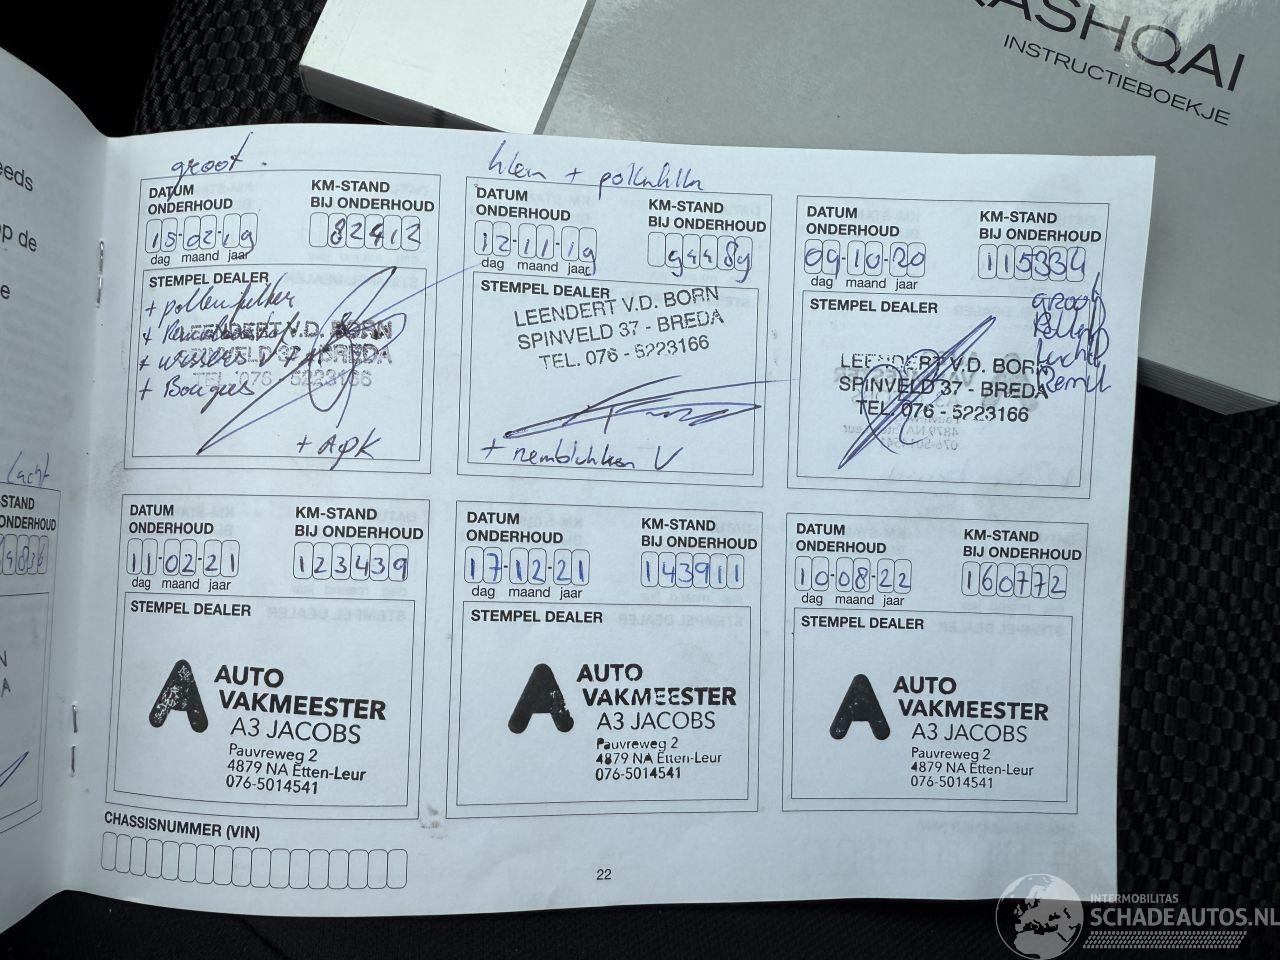 ASHQAI
INSTRUCTIEBOEKJE
eeds
op de
e
groot.
DATUM
ONDERHOUD
15-02-19
dag maand jaar
KM-STAND
BIJ ONDERHOUD
82412
STEMPEL DEALER
+ pollenfilter
LEENDERT V.D. BORN
SPINVELD 37 - BREDA
TEL. 076 - 5223166
+ Bougies
+ APK
klein + pollenfilter
DATUM
ONDERHOUD
12-11-19
dag maand jaar
KM-STAND
BIJ ONDERHOUD
STEMPEL DEALER
LEENDERT V.D. BORN
SPINVELD 37 - BREDA
TEL. 076 - 5223166
+ remblokken V
DATUM
ONDERHOUD
09-10-20
dag maand jaar
KM-STAND
BIJ ONDERHOUD
115334
STEMPEL DEALER
groot
LEENDERT V.D. BORN
SPINVELD 37 - BREDA
TEL. 076 - 5223166
STAND
ONDERHOUD
DATUM
ONDERHOUD
11-02-21
dag maand jaar
KM-STAND
BIJ ONDERHOUD
123439
STEMPEL DEALER
AUTO
VAKMEESTER
A3 JACOBS
Pauvreweg 2
4879 NA Etten-Leur
076-5014541
DATUM
ONDERHOUD
17-12-21
dag maand jaar
KM-STAND
BIJ ONDERHOUD
143911
STEMPEL DEALER
AUTO
VAKMEESTER
A3 JACOBS
Pauvreweg 2
4879 NA Etten-Leur
076-5014541
DATUM
ONDERHOUD
10-08-22
dag maand jaar
KM-STAND
BIJ ONDERHOUD
160772
STEMPEL DEALER
AUTO
VAKMEESTER
A3 JACOBS
Pauvreweg 2
4879 NA Etten-Leur
076-5014541
CHASSISNUMMER (VIN)
22
INTERMOBILITAS
SCHADEAUTOS.NL